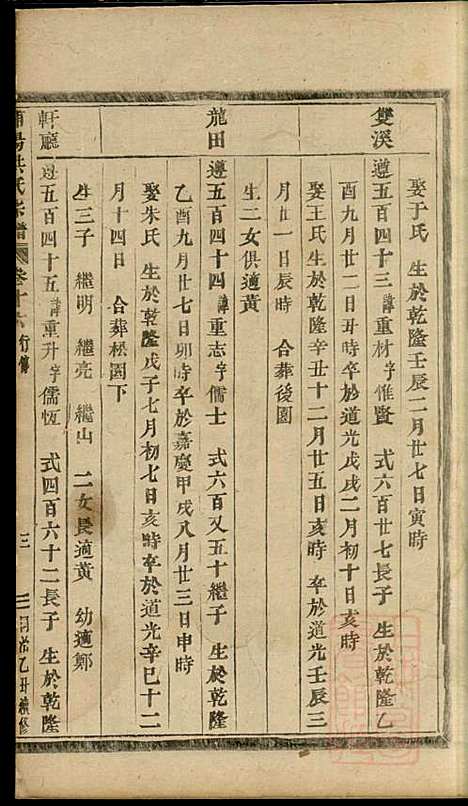 娶于氏 生於乾隆壬辰二月廿七日寅時
雙溪
遵五百四十三諱重材字惟賢 式六百廿七長子 生於乾隆乙
酉九月廿二日丑時卒於道光戊戌二月初十日亥時
娶王氏 生於乾隆辛丑十二月廿五日亥時 卒於道光壬辰三
月廿一日辰時 合葬後園
生二女俱適黃
龍田
遵五百四十四諱重志字儒士 式六百又五十繼子 生於乾隆
乙酉九月廿七日卯時卒於嘉慶甲戌八月廿三日申時
娶朱氏 生於乾隆戊子七月初七日亥時卒於道光辛巳十二
月十四日 合葬松園下
生三子 繼明 繼亮 繼山 二女長適黃 幼適鄭
軒廳
遵五百四十五諱重升字儒恆 式四百六十二長子 生於乾隆
陽洪氏宗譜 卷十六 行傳 三 乙丑續修